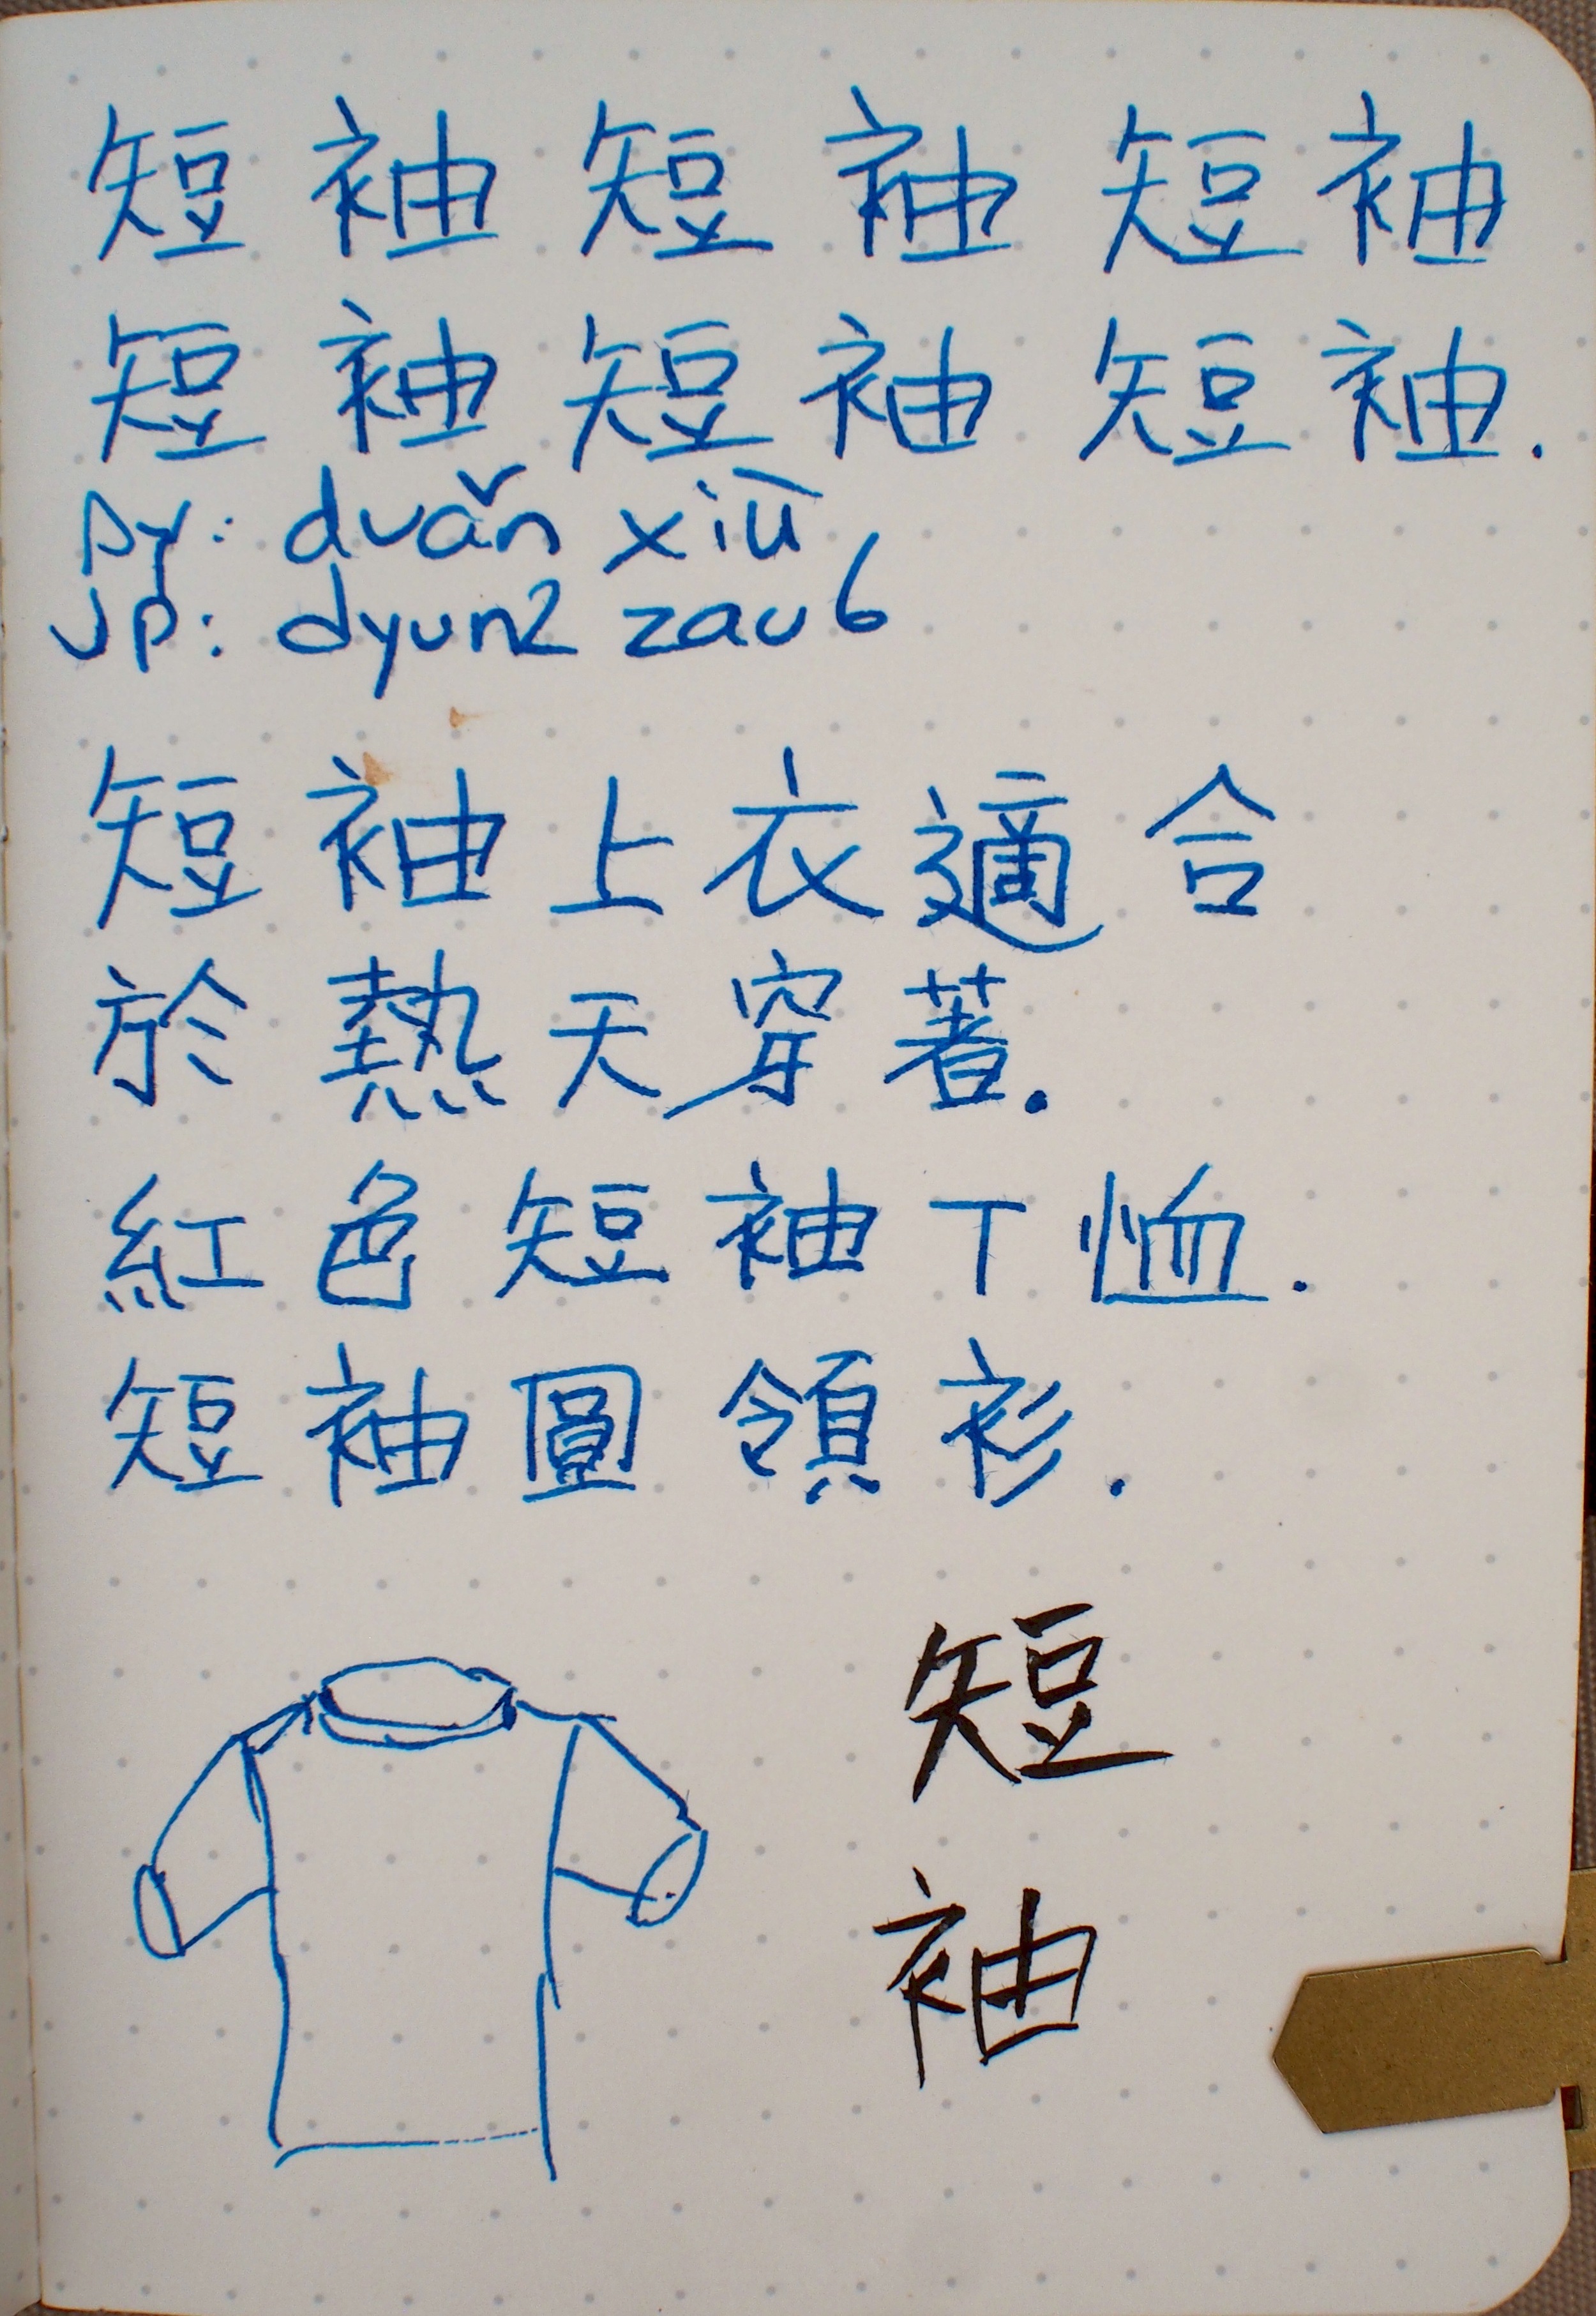 短袖短袖短袖
短袖短袖短袖.
py: duǎn xiù
jp: dyun2 zau6
短袖上衣適合
於熱天穿著.
紅色短袖T恤.
短袖圓領衫.
短
袖